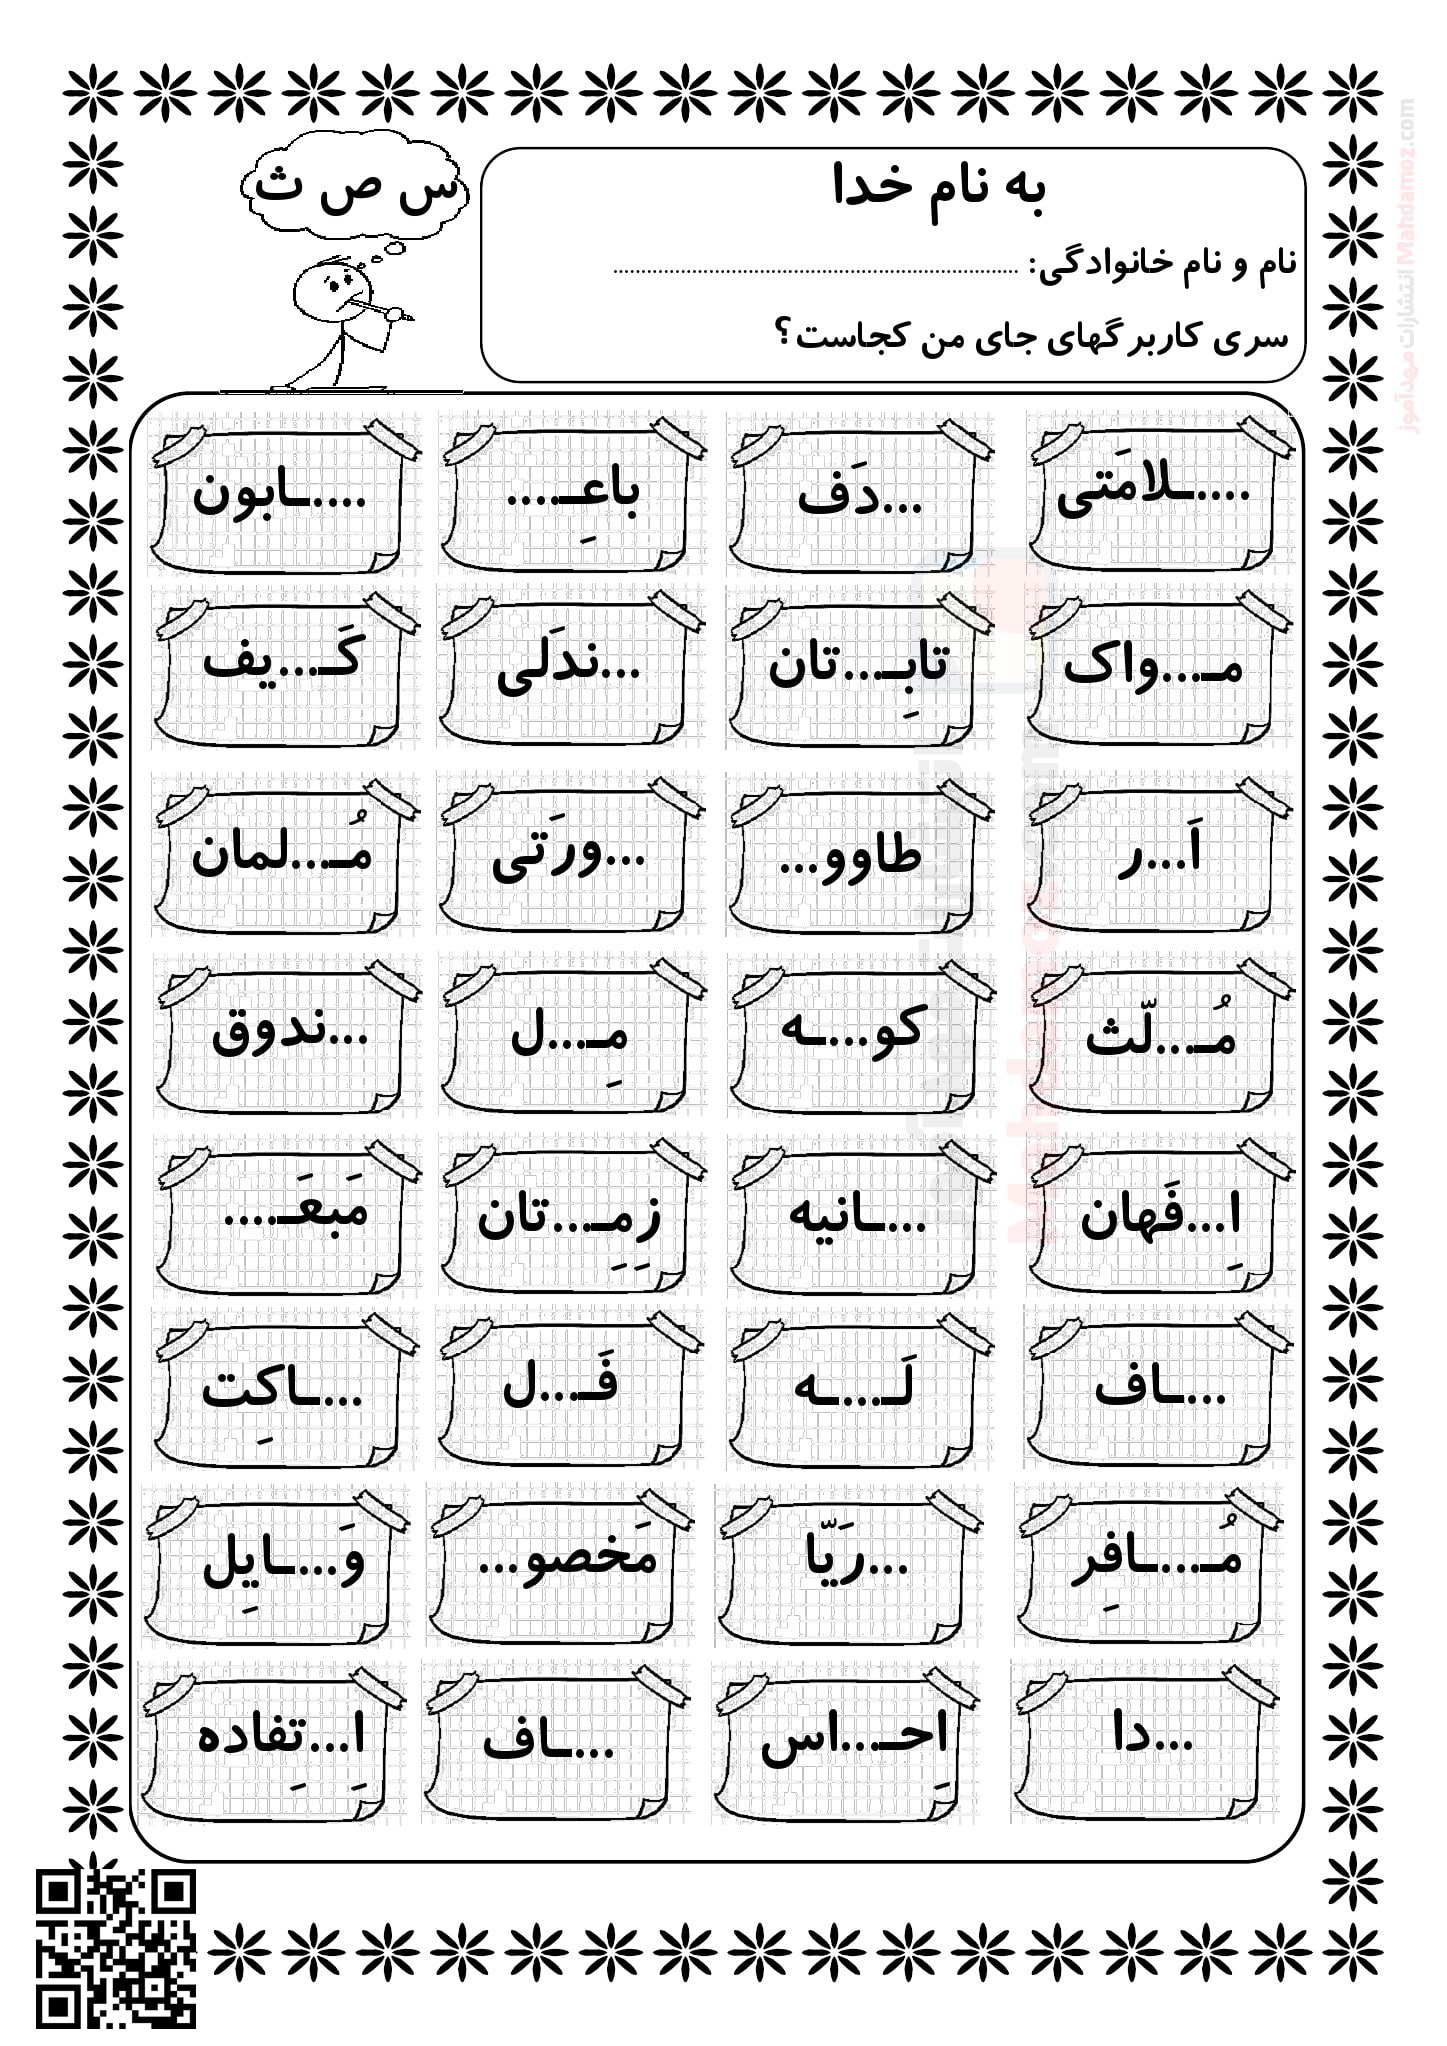 به نام خدا
نام و نام خانوادگی: ........................................................................
سری کاربرگهای جای من کجاست؟
س ص ث
....ـلامَتی ...دَف باعِـ.... ....ـابون
مـ...واک تابِـ...تان ...ندَلی گَـ...یف
اَ...ر طاوو... ...ورَتی مُـ...لمان
مُـ...لّث کو...ـه مِـ...ل ...ندوق
اِ...فَهان ...ـانیه زِمِـ...تان مَبعَـ....
...ـاف لَـ...ـه فَـ...ل ...ـاکِت
مُـ...ـافِر ...رَیّا مَخصو... وَ...ـایِل
...دا اِحـ...اس ...ـاف اِ...تِفاده
انتشارات مهدآموز Mahdamoz.com